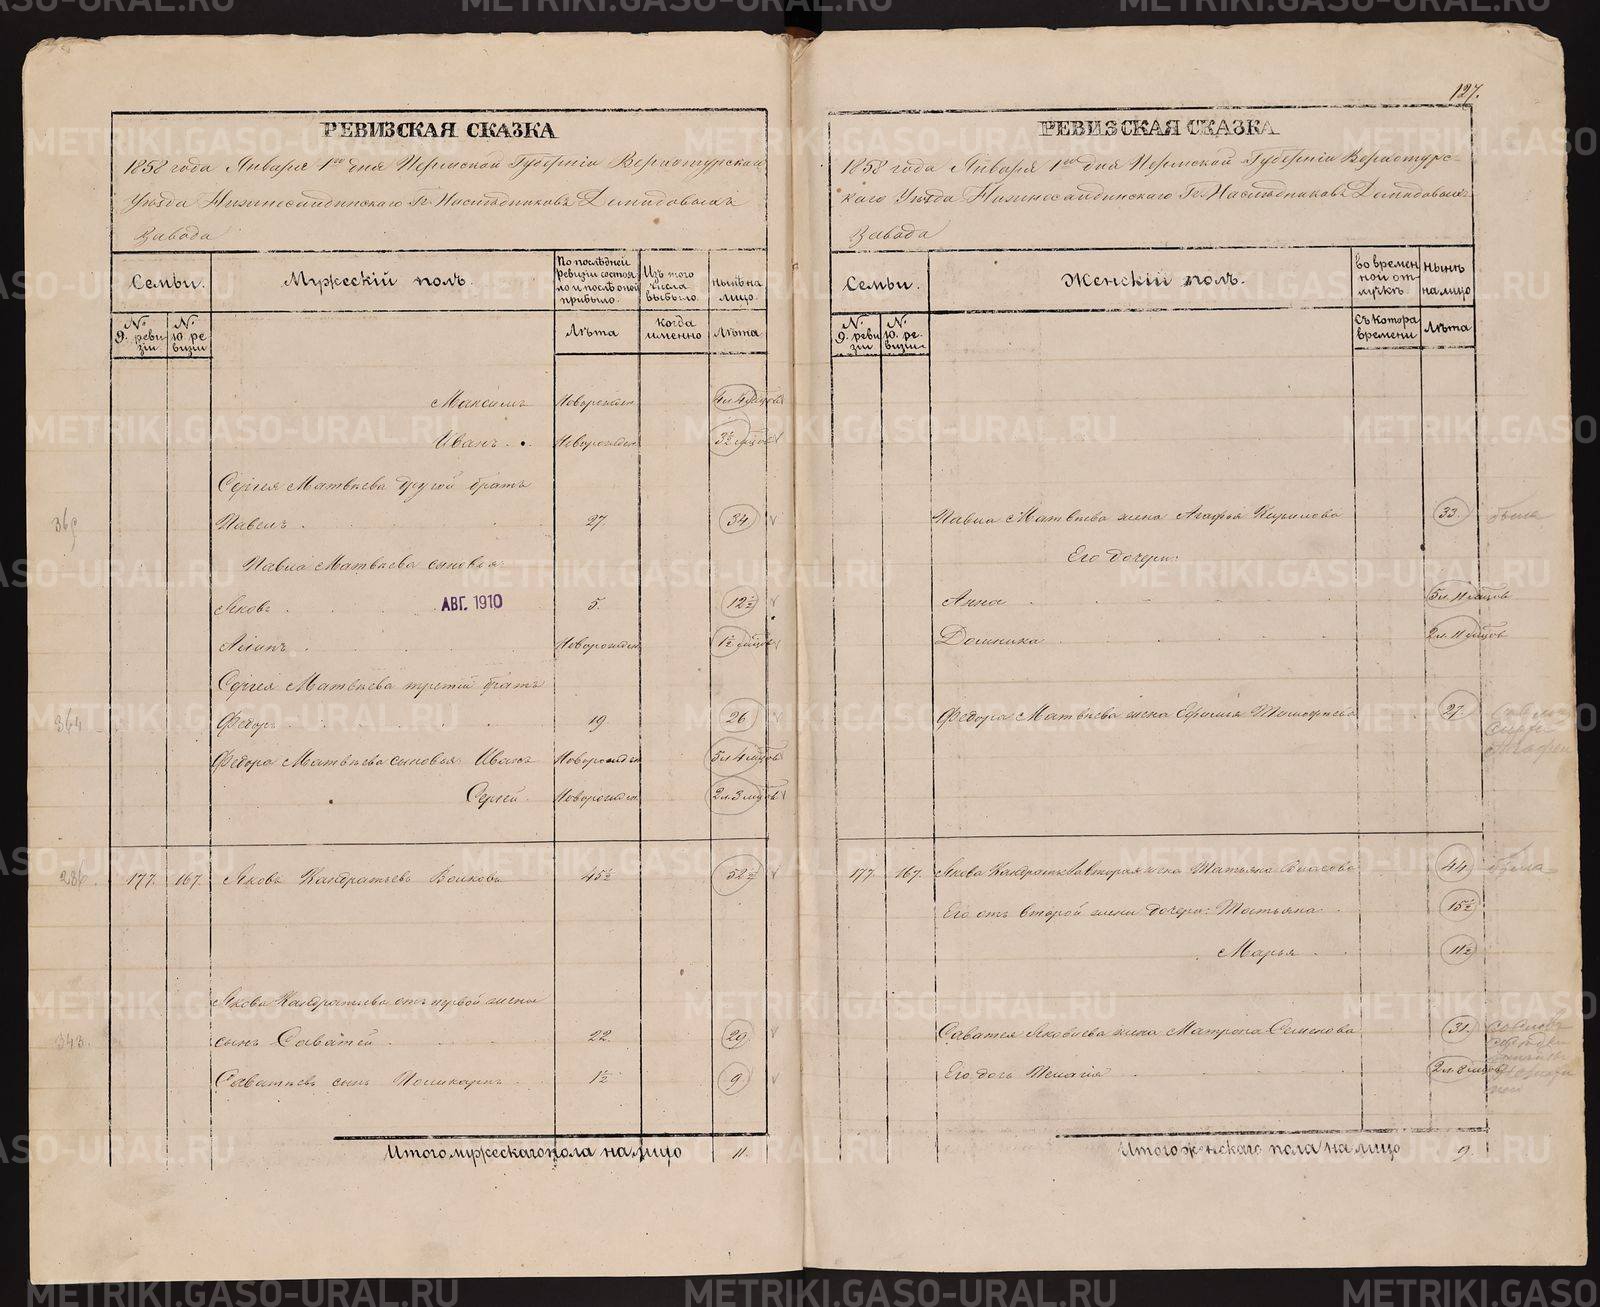 127.
РЕВИЗСКАЯ СКАЗКА
1858 года Января 1го дня Пермской Губерніи Верхотурскаго
Уѣзда Нижнесалдинскаго Гг. Наслѣдниковъ Демидовыхъ
Завода
Семьи.
Мужескій полъ.
По послѣдней ревизіи состояло и послѣ оной прибыло.
Изъ того числа выбыло.
нынѣ на лицо.
№ 9. ревизіи
№ 10. ревизіи
Лѣта
Когда именно
Лѣта
Максимъ Новорожден 4 л 4 мцовъ
Иванъ Новорожден 3½ мцовъ
Сергея Матвѣева другой братъ
Павелъ 27. 34
Павла Матвѣева сыновья:
Яковъ АВГ. 1910 5. 12½
Новорожден 1½ мцовъ
Сергея Матвѣева третій братъ
364 Федоръ 19 26
Федора Матвѣева сыновья Иванъ Новорожден 5 л 4 мцовъ
Сергей Новорожден 2 л 3 мцов
177. 167. Яковъ Кандратьевъ Волковъ 45½ 52½
Якова Кандратьева отъ первой жены
343. сынъ Саватей 22. 29
Саватѣевъ сынъ Поликарпъ 1½ 9
Итого мужескаго пола на лицо 11.
РЕВИЗСКАЯ СКАЗКА
1858 года Января 1го дня Пермской Губерніи Верхотурс-
каго Уѣзда Нижнесалдинскаго Гг. Наслѣдниковъ Демидовыхъ
Завода
Семьи.
Женскій полъ.
Во временной отлучкѣ.
нынѣ на лицо
№ 9. ревизіи
№ 10. ревизіи
Съ котора времени
Лѣта
Павла Матвѣева жена Агафья Кирилова 33.
Его дочери:
Анна 5 л 11 мцов
Домника 2 л. 11 мцов
Федора Матвѣева жена Ефимья Тимофѣева 27
177. 167. Якова Кандратьева вторая жена Татьяна Власова 44
Его отъ второй жены дочери: Татьяна 15½
Марья 11½
Саватея Яковлева жена Матрона Семенова 31.
Его дочь Пелагія 2 л 8 мцов
Итого женскаго пола на лицо 9.
METRIKI.GASO-URAL.RU